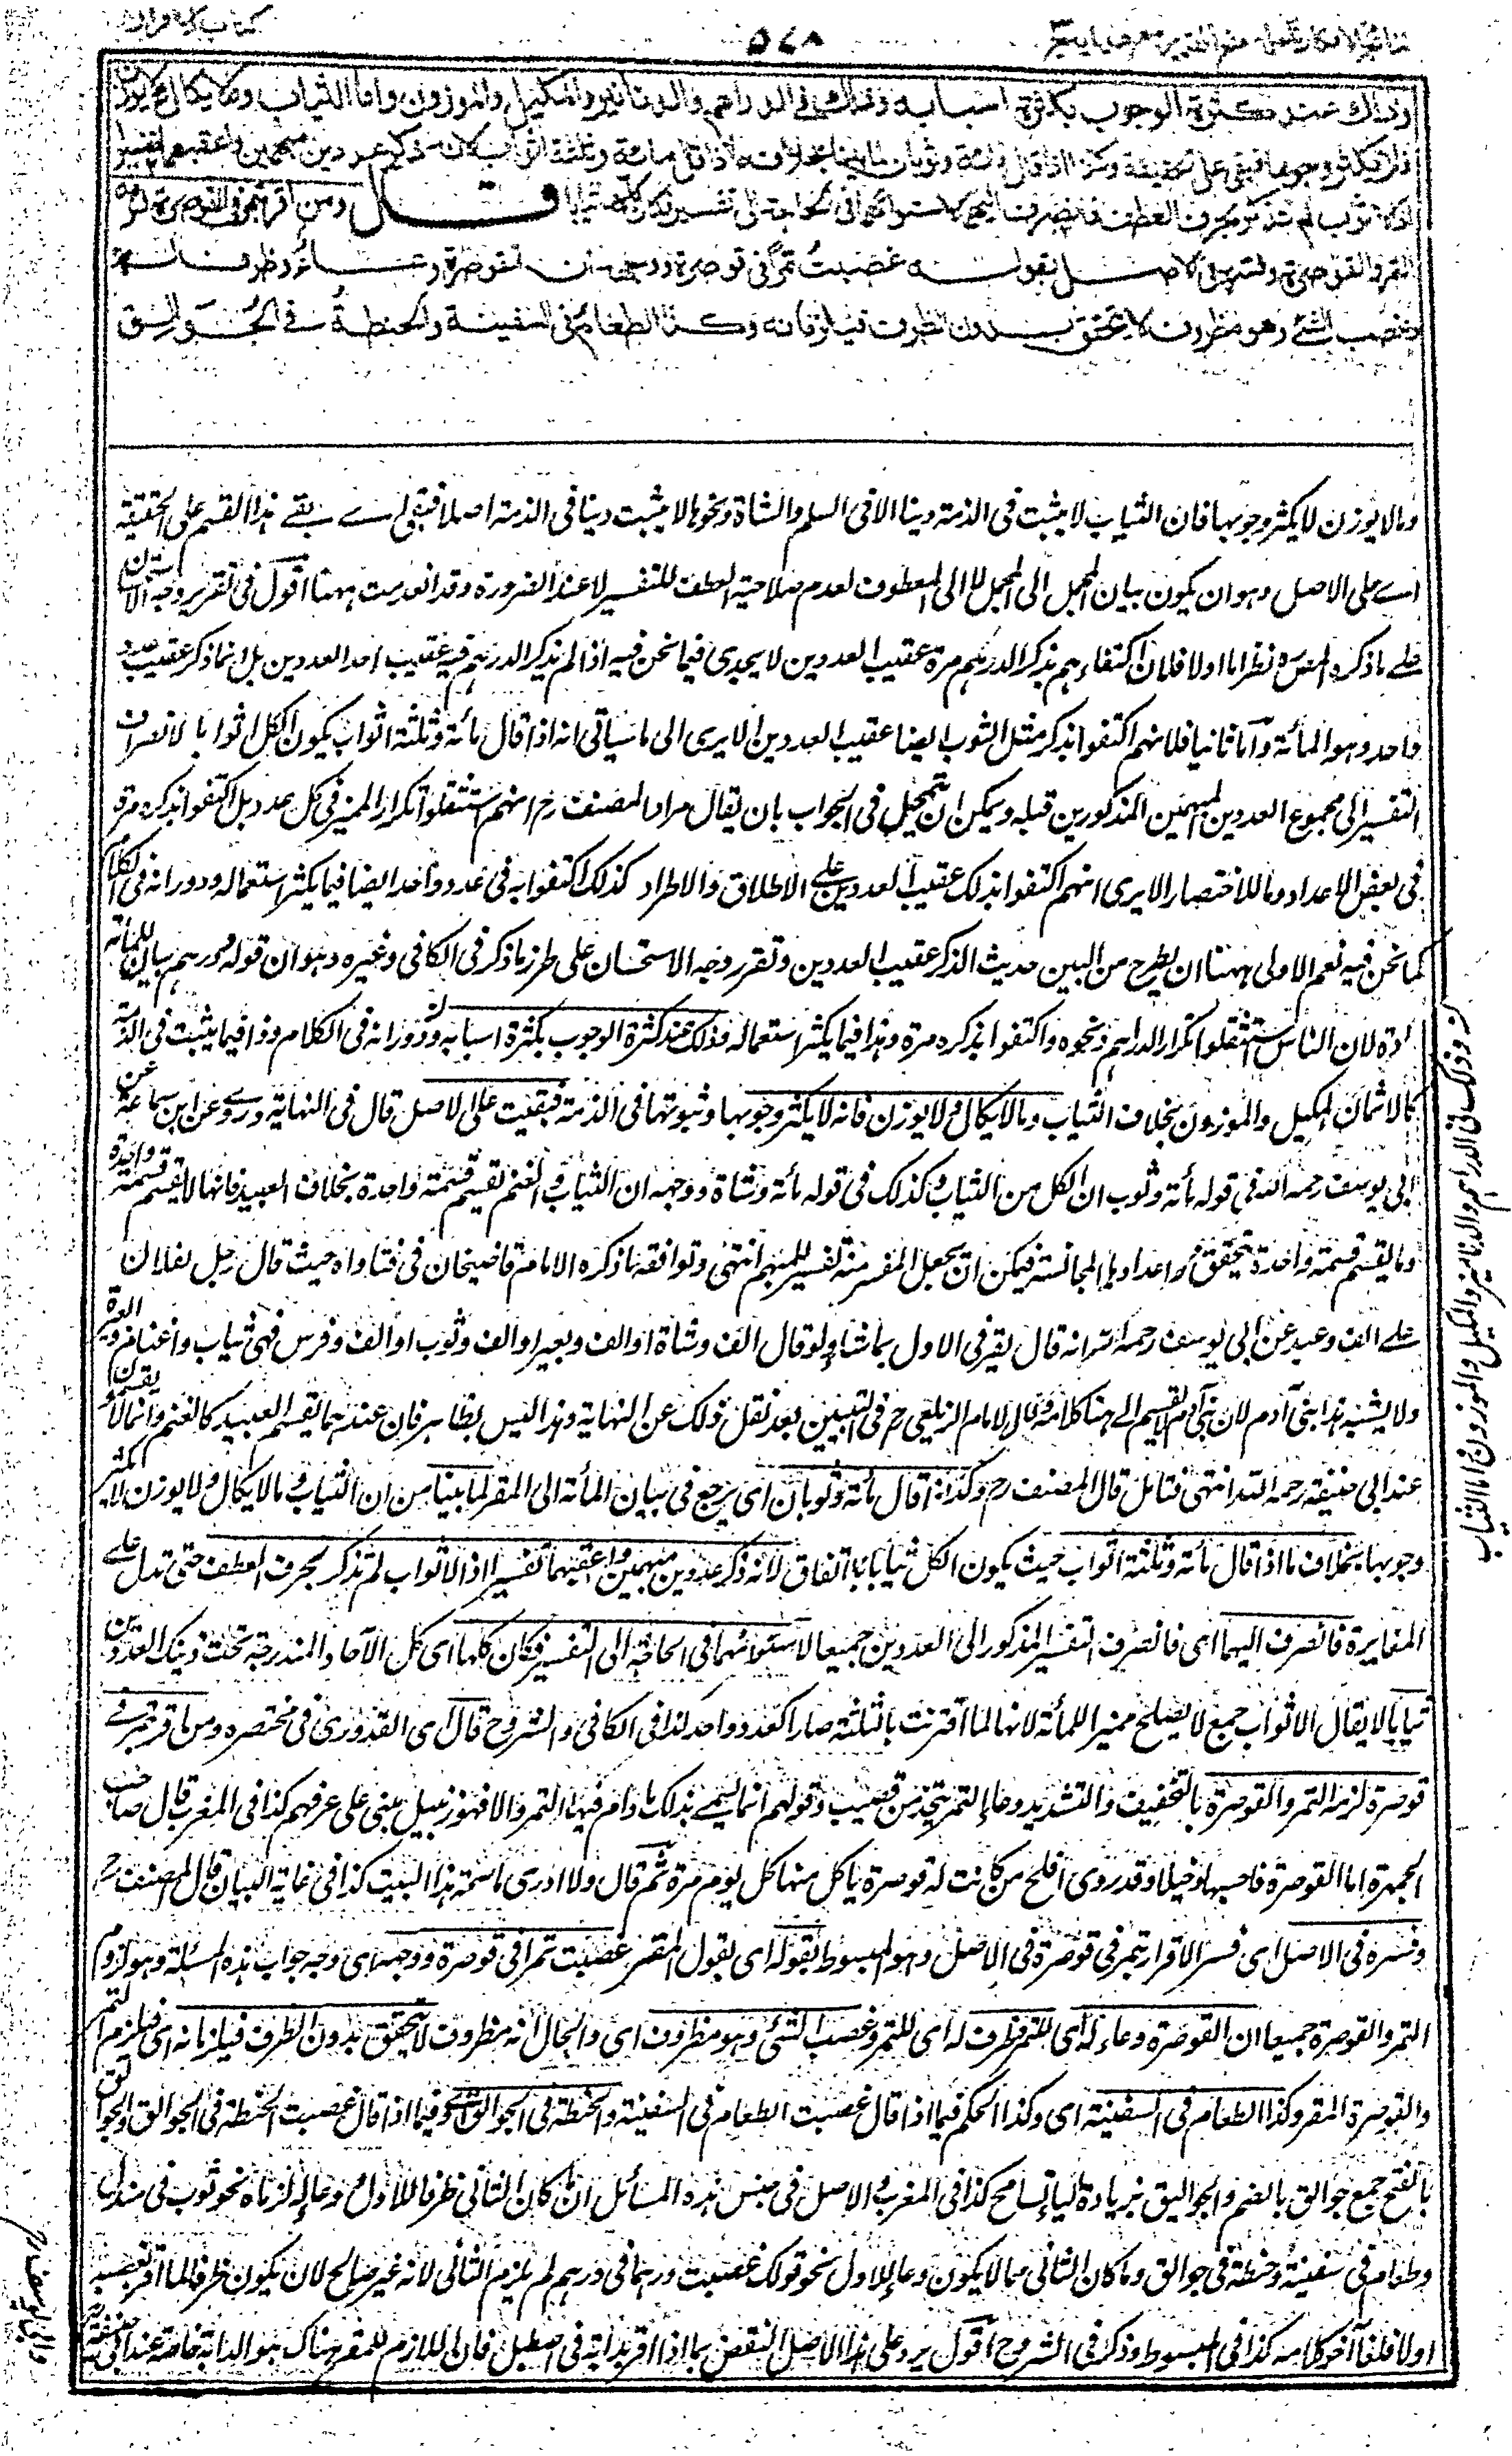 كتاب الاقرار
٥٤٨
نتائج الافكار تكملة فتح القدير مع هداية ج ٣
وذلك عند كثرة الوجوب بكثرة اسبابه وذلك في الدراهم والدنانير والمكيل والموزون واما الثياب وما لا يكال ولا يوزن
فلا يكثر وجوبها فبقي على الحقيقة وكذا اذا قال مائة وثوبان لما بينا بخلاف ما اذا قال مائة وثلثة اثواب لانه ذكر عددين مبهمين واعقبهما تفسيرا
اذ الاثواب لم تذكر بحرف العطف فانصرف اليهما لاستوائهما في الحاجة الى التفسير فكان كلها ثيابا قال ومن اقر بتمر في قوصرة لزمه
التمر والقوصرة وفسره في الاصل بقوله غصبت تمرا في قوصرة ووجهه ان القوصرة وعاء له وظرف له
وغصب الشئ وهو مظروف لا يتحقق بدون الظرف فيلزمانه وكذا الطعام في السفينة والحنطة في الجوالق
وما لا يوزن لا يكثر وجوبها فان الثياب لا يثبت في الذمة دينا الا في السلم والشاة ونحوها لا يثبت دينا في الذمة اصلا فبقي اى بقي هذا القسم على الحقيقة
اى على الاصل وهو ان يكون بيان المجمل الى المجمل لا الى المعطوف لعدم صلاحية العطف للتفسير الا عند الضرورة وقد انعدمت ههنا اقول في تقرير وجه الاستحسان
على ما ذكره المصنف نظر اما اولا فلان اكتفاءهم بذكر الدرهم مرة عقيب العددين لا يجدى فيما نحن فيه اذ لم يذكر الدرهم فيه عقيب احد العددين بل انما ذكر عقيب عدد
واحد وهو المائة واما ثانيا فلانهم اكتفوا بذكر مثل الثوب ايضا عقيب العددين الا يرى الى ما سيأتي انه اذا قال مائة وثلثة اثواب يكون الكل اثوابا لانصراف
التفسير الى مجموع العددين المبهمين المذكورين قبله ويمكن ان يتمحل في الجواب بان يقال مراد المصنف رح انهم استثقلوا تكرار المميز في كل عدد بل اكتفوا بذكره مرة
في بعض الاعداد وما للاختصار الا يرى انهم اكتفوا بذلك عقيب العددين على الاطلاق والاطراد كذلك اكتفوا به في عدد واحد ايضا فيما يكثر استعماله ودورانه في الكلام
كما نحن فيه نعم الاولى ههنا ان يطرح من البين حديث الذكر عقيب العددين وتقرر وجه الاستحسان على طرز ما ذكر في الكافي وغيره وهو ان قوله ودرهم بيان للمائة
عادة لان الناس استثقلوا تكرار الدراهم ونحوه واكتفوا بذكره مرة وهذا فيما يكثر استعماله وذلك عند كثرة الوجوب بكثرة اسبابه ودورانه في الكلام وذا فيما يثبت في الذمة
كالاثمان والمكيل والموزون بخلاف الثياب وما لا يكال ولا يوزن فانه لا يكثر وجوبها وثبوتها في الذمة فبقيت على الاصل قال في النهاية وروى عن ابن سماعة عن
ابي يوسف رحمه الله في قوله مائة وثوب ان الكل من الثياب وكذلك في قوله مائة وشاة ووجهه ان الثياب والغنم تقسم قسمة واحدة بخلاف العبيد فانها لا تقسم قسمة واحدة
وما يقسم قسمة واحدة يتحقق في اعدادها المجانسة فيمكن ان يجعل المفسر منه تفسيرا للمبهم انتهى وتوافقه ما ذكره الامام قاضيخان في فتاواه حيث قال رجل لفلان
على الف وعبد عن ابي يوسف رحمه الله انه قال يقر في الاول بما شاء ولو قال الف وشاة او الف وبعير او الف وثوب او الف وفرس فهي ثياب واغنام وبعير
ولا يشبه هذا بني آدم لان بني آدم لا يقسم الى هنا كلامه وقال الامام الزيلعي رح في التبيين بعد نقل ذلك عن النهاية وهذا ليس بظاهر فان عندهما يقسم العبيد كالغنم وانما لا يقسمون
عند ابي حنيفة رحمه الله انتهى فتامل قال المصنف رح وكذا اذا قال مائة وثوبان اى يرجع في بيان المائة الى المقر لما بينا من ان الثياب وما لا يكال ولا يوزن لا يكثر
وجوبها بخلاف ما اذا قال مائة وثلثة اثواب حيث يكون الكل ثيابا بالاتفاق لانه ذكر عددين مبهمين واعقبهما تفسيرا اذ الاثواب لم تذكر بحرف العطف حتى تدل على
المغايرة فانصرف اليهما اى فانصرف التفسير المذكور الى العددين جميعا لاستوائهما في الحاجة الى التفسير فكان كلها اى كل الآحاد المندرجة تحت ذينك العددين
ثيابا لا يقال الاثواب جمع لا يصلح مميزا للمائة لانها لما اقترنت بالثلثة صارا كعدد واحد كذا في الكافي والشروح قال اى القدورى في مختصره ومن اقر بتمر في
قوصرة لزمه التمر والقوصرة بالتخفيف والتشديد وعاء التمر يتخذ من قصب وقولهم انما يسمى بذلك ما دام فيها التمر والا فهو زنبيل مبنى على عرفهم كذا في المغرب قال صاحب
الجمهرة اما القوصرة فاحسبها دخيلا وقد روى افلح من كانت له قوصرة ياكل منها كل يوم مرة ثم قال ولا ادرى ما صحة هذا البيت كذا في غاية البيان قال المصنف رح
وفسره في الاصل اى فسر الاقرار بتمر في قوصرة في الاصل وهو المبسوط بقوله اى بقول المقر غصبت تمرا في قوصرة ووجهه اى وجه جواب هذه المسئلة وهو لزوم
التمر والقوصرة جميعا ان القوصرة وعاء له اى للتمر فظرف له اى للتمر وغصب الشئ وهو مظروف اى والحال انه مظروف لا يتحقق بدون الظرف فيلزمانه اى فيلزم التمر
والقوصرة المقر وكذا الطعام في السفينة اى وكذا الحكم فيما اذا قال غصبت الطعام في السفينة والحنطة في الجوالق اى وفيما اذا قال غصبت الحنطة في الجوالق والجوالق
بالفتح جمع جوالق بالضم والجواليق بزيادة الياء تسامح كذا في المغرب والاصل في جنس هذه المسائل ان ما كان الثاني ظرفا للاول ووعاء له لزماه نحو ثوب في منديل
وطعام في سفينة وحنطة في جوالق وما كان الثاني مما لا يكون وعاء للاول نحو قولك غصبت درهما في درهم لم يلزم الثاني لانه غير صالح لان يكون ظرفا لما اقر بغصبه
اولا فلغا آخر كلامه كذا في المبسوط وذكر في الشروح اقول يرد على هذا الاصل النقض بما اذا اقر بدابة في اصطبل فان اللازم للمقر هناك هو الدابة خاصة عند ابي حنيفة
وابي يوسف رح
قوله وذلك في الدراهم والدنانير والمكيل والموزون واما الثياب